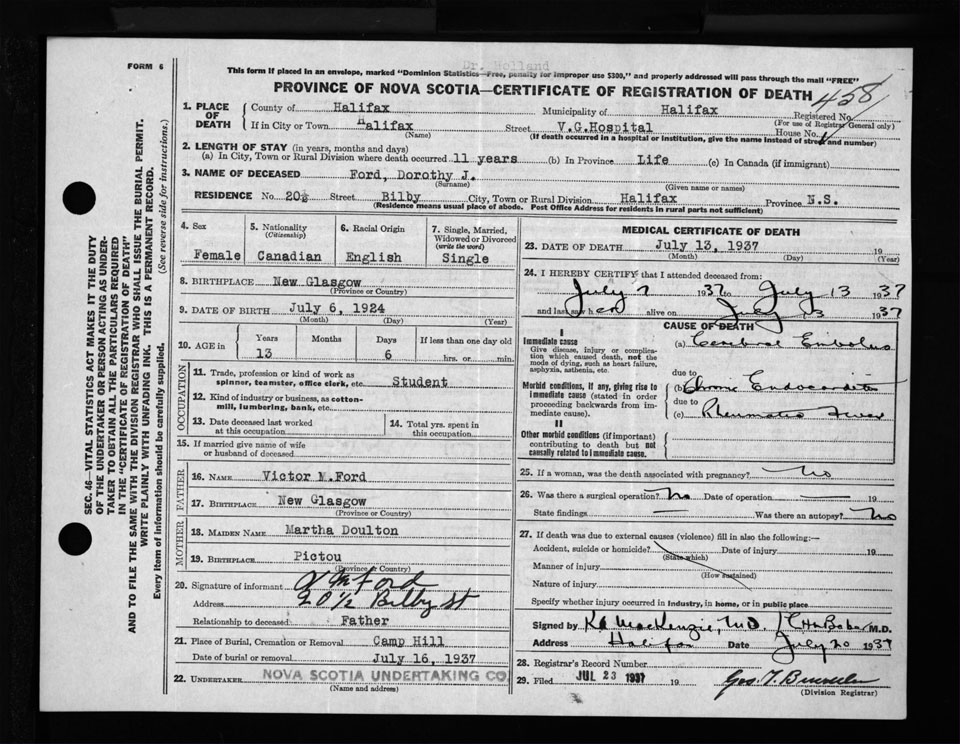 Dr. Holland
FORM 6
This form if placed in an envelope, marked "Dominion Statistics—Free, penalty for improper use $300," and properly addressed will pass through the mail "FREE"
PROVINCE OF NOVA SCOTIA—CERTIFICATE OF REGISTRATION OF DEATH
458
1. PLACE OF DEATH
County of Halifax Municipality of Halifax
Registered No.
(For use of Registrar General only)
If in City or Town Halifax Street V.G.Hospital House No.
(Name) (If death occurred in a hospital or institution, give the name instead of street and number)
2. LENGTH OF STAY (in years, months and days)
(a) In City, Town or Rural Division where death occurred 11 years (b) In Province Life (c) In Canada (if immigrant)
3. NAME OF DECEASED Ford, Dorothy J.
(Surname) (Given name or names)
RESIDENCE No. 20½ Street Bilby City, Town or Rural Division Halifax Province N.S.
(Residence means usual place of abode. Post Office Address for residents in rural parts not sufficient)
4. Sex
Female
5. Nationality
(Citizenship)
Canadian
6. Racial Origin
English
7. Single, Married,
Widowed or Divorced
(write the word)
Single
8. BIRTHPLACE New Glasgow
(Province or Country)
9. DATE OF BIRTH July 6, 1924
(Month) (Day) (Year)
10. AGE in Years Months Days If less than one day old
13 6 hrs. or min.
OCCUPATION
11. Trade, profession or kind of work as
spinner, teamster, office clerk, etc. Student
12. Kind of industry or business, as cotton-
mill, lumbering, bank, etc.
13. Date deceased last worked
at this occupation
14. Total yrs. spent in
this occupation
15. If married give name of wife
or husband of deceased
FATHER
16. NAME Victor M.Ford
17. BIRTHPLACE New Glasgow
(Province or Country)
MOTHER
18. MAIDEN NAME Martha Doulton
19. BIRTHPLACE Pictou
(Province or Country)
20. Signature of informant V M Ford
Address 20½ Bilby St
Relationship to deceased Father
21. Place of Burial, Cremation or Removal Camp Hill
Date of burial or removal July 16, 1937
22. UNDERTAKER NOVA SCOTIA UNDERTAKING CO.
(Name and address)
MEDICAL CERTIFICATE OF DEATH
23. DATE OF DEATH July 13, 1937 19
(Month) (Day) (Year)
24. I HEREBY CERTIFY that I attended deceased from
July 7 1937 to July 13 1937
and last saw her alive on July 13 1937
CAUSE OF DEATH
I
Immediate cause
Give disease, injury or complica-
tion which caused death, not the
mode of dying, such as heart failure,
asphyxia, asthenia, etc.
(a) Cerebral Embolus
due to
Morbid conditions, if any, giving rise to
immediate cause (stated in order
proceeding backwards from im-
mediate cause).
(b) Chronic Endocarditis
due to
(c) Rheumatic Fever
II
Other morbid conditions (if important)
contributing to death but not
causally related to immediate cause.
25. If a woman, was the death associated with pregnancy? No
26. Was there a surgical operation? No Date of operation — 19
State findings — Was there an autopsy? No
27. If death was due to external causes (violence) fill in also the following:—
Accident, suicide or homicide? Date of injury 19
(State which)
Manner of injury
(How sustained)
Nature of injury
Specify whether injury occurred in industry, in home, or in public place
Signed by MacKenzie, M.D. M.D.
Address Halifax Date July 20 1937
28. Registrar's Record Number
29. Filed JUL 23 1937 19
(Division Registrar)
SEC. 46—VITAL STATISTICS ACT MAKES IT THE DUTY
OF THE UNDERTAKER OR PERSON ACTING AS UNDER-
TAKER TO OBTAIN ALL THE PARTICULARS REQUIRED
IN THE "CERTIFICATE OF REGISTRATION OF DEATH"
AND TO FILE THE SAME WITH THE DIVISION REGISTRAR WHO SHALL ISSUE THE BURIAL PERMIT.
WRITE PLAINLY WITH UNFADING INK. THIS IS A PERMANENT RECORD.
Every item of information should be carefully supplied. (See reverse side for instructions.)